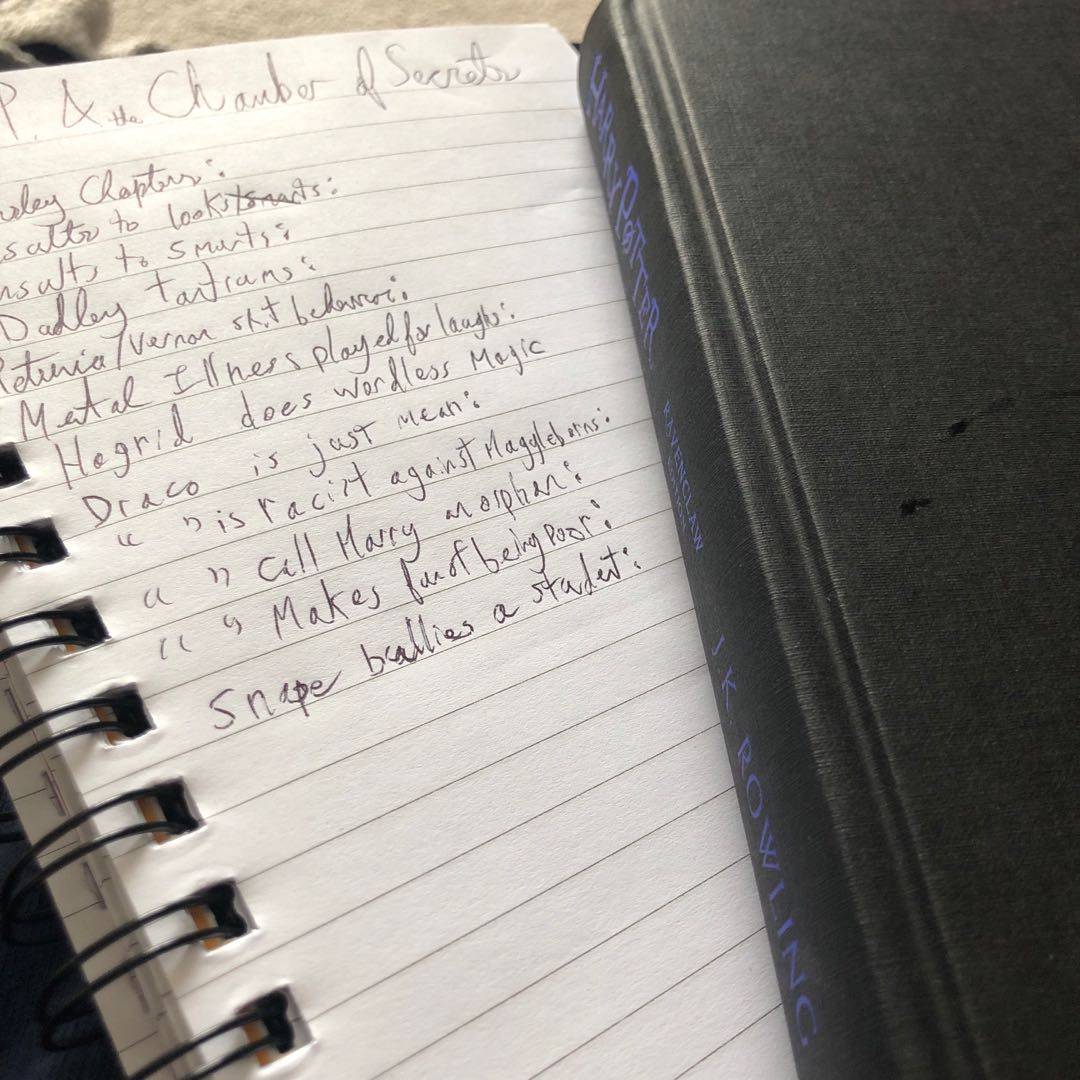 P. & the Chamber of Secrets
sley Chapters:
sults to looks smarts:
nsults to smarts:
Dudley tantrums:
Petunia/Vernon shit behavior:
Mental Illness played for laughs:
Hagrid does wordless Magic
Draco is just mean:
" " is racist against Muggleborns:
" " call Harry an orphan:
" " Makes fun of being poor:
Snape bullies a student:
HARRY POTTER
RAVENCLAW
EDITION
J.K. ROWLING